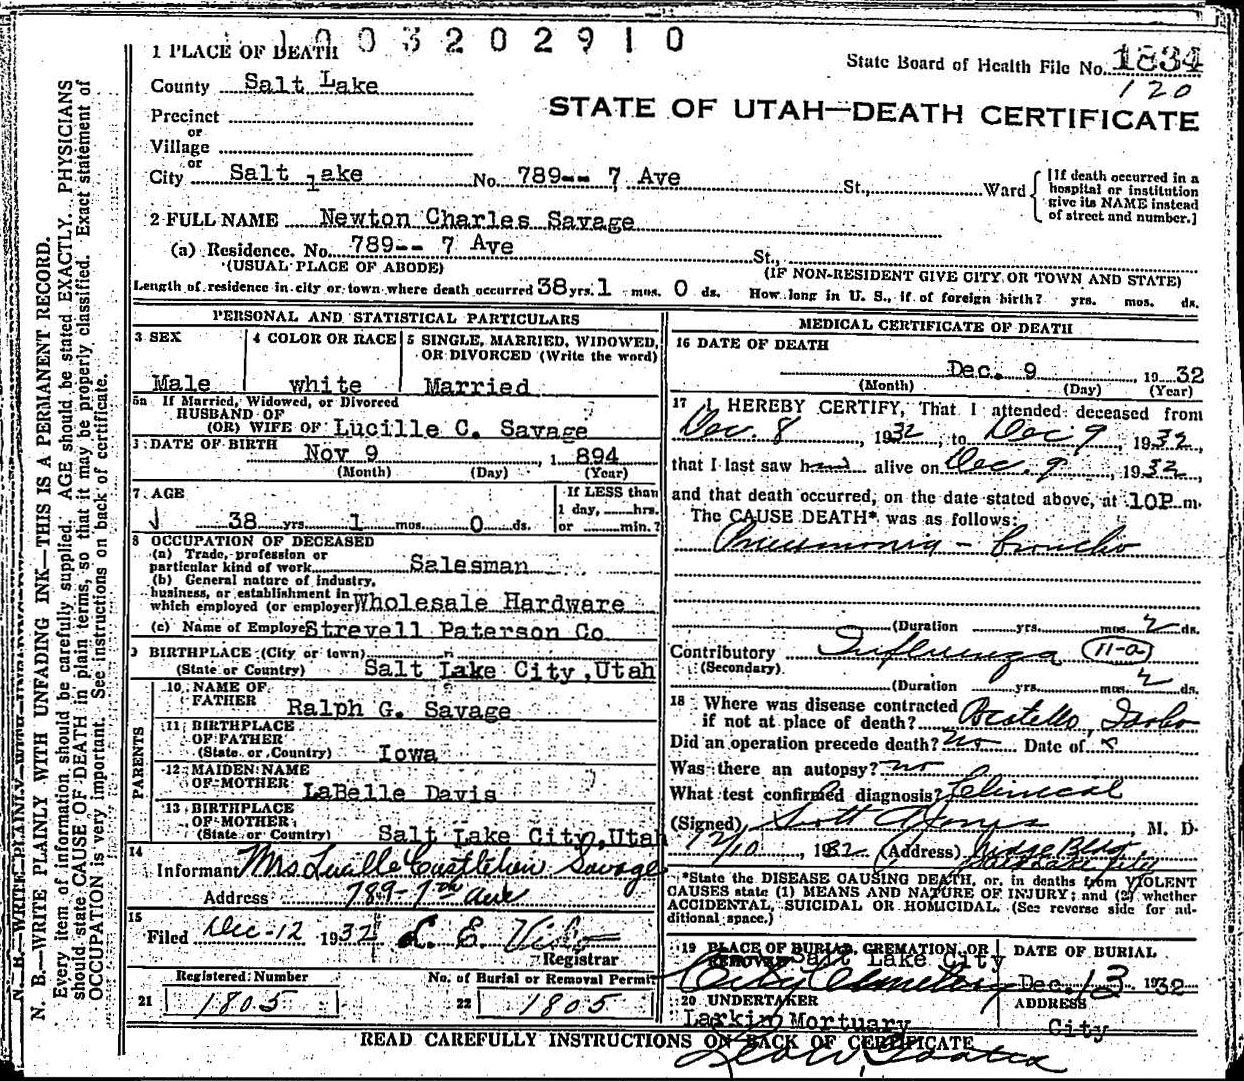 1003202910
1 PLACE OF DEATH
State Board of Health File No. 1834
120
County Salt Lake
STATE OF UTAH—DEATH CERTIFICATE
Precinct
or
Village
or
City Salt Lake No. 789-- 7 Ave St., Ward
[If death occurred in a
hospital or institution
give its NAME instead
of street and number.]
2 FULL NAME Newton Charles Savage
(a) Residence. No. 789-- 7 Ave St.,
(USUAL PLACE OF ABODE) (IF NON-RESIDENT GIVE CITY OR TOWN AND STATE)
Length of residence in city or town where death occurred 38 yrs. 1 mos. 0 ds. How long in U. S., if of foreign birth? yrs. mos. ds.
PERSONAL AND STATISTICAL PARTICULARS
3 SEX
Male
4 COLOR OR RACE
white
5 SINGLE, MARRIED, WIDOWED,
OR DIVORCED (Write the word)
Married
5a If Married, Widowed, or Divorced
HUSBAND OF
(OR) WIFE OF Lucille C. Savage
DATE OF BIRTH
Nov 9, 1 894
(Month) (Day) (Year)
7 AGE
38 yrs. 1 mos. 0 ds.
If LESS than
1 day, hrs.
or min.?
8 OCCUPATION OF DECEASED
(a) Trade, profession or
particular kind of work Salesman
(b) General nature of industry,
business, or establishment in
which employed (or employer Wholesale Hardware
(c) Name of Employer Strevell Paterson Co
9 BIRTHPLACE (City or town)
(State or Country) Salt Lake City, Utah
PARENTS
10 NAME OF
FATHER Ralph G. Savage
11 BIRTHPLACE
OF FATHER
(State or Country) Iowa
12 MAIDEN NAME
OF MOTHER LaBelle Davis
13 BIRTHPLACE
OF MOTHER
(State or Country) Salt Lake City, Utah
14
Informant Mrs Lucille Castleton Savage
Address 789-7th Ave
15
Filed Dec-12 1932 L. E.
Registrar
Registered Number
21 1805
No. of Burial or Removal Permit
22 1805
MEDICAL CERTIFICATE OF DEATH
16 DATE OF DEATH
Dec. 9, 1932
(Month) (Day) (Year)
17 I HEREBY CERTIFY, That I attended deceased from
Dec. 8, 1932, to Dec 9, 1932,
that I last saw h alive on Dec. 9, 1932
and that death occurred, on the date stated above, at 10P m.
The CAUSE DEATH* was as follows:
Pneumonia - broncho
(Duration yrs. mos. 2 ds.
Contributory Influenza 11-a
(Secondary)
(Duration yrs. mos. 2 ds.
18 Where was disease contracted
if not at place of death? Pocatello, Idaho
Did an operation precede death? no Date of
Was there an autopsy? no
What test confirmed diagnosis? Clinical
(Signed) , M. D.
12/10, 1932 (Address) Judge Bldg
*State the DISEASE CAUSING DEATH, or, in deaths from VIOLENT
CAUSES state (1) MEANS AND NATURE OF INJURY; and (2) whether
ACCIDENTAL, SUICIDAL OR HOMICIDAL. (See reverse side for ad-
ditional space.)
19 PLACE OF BURIAL, CREMATION, OR
REMOVAL Salt Lake City
City Cemetery
DATE OF BURIAL
Dec. 13 1932
20 UNDERTAKER
Larkin Mortuary
ADDRESS
City
READ CAREFULLY INSTRUCTIONS ON BACK OF CERTIFICATE
N. B.—WRITE PLAINLY WITH UNFADING INK—THIS IS A PERMANENT RECORD.
Every item of information should be carefully supplied. AGE should be stated EXACTLY. PHYSICIANS
should state CAUSE OF DEATH in plain terms, so that it may be properly classified. Exact statement of
OCCUPATION is very important. See instructions on back of certificate.